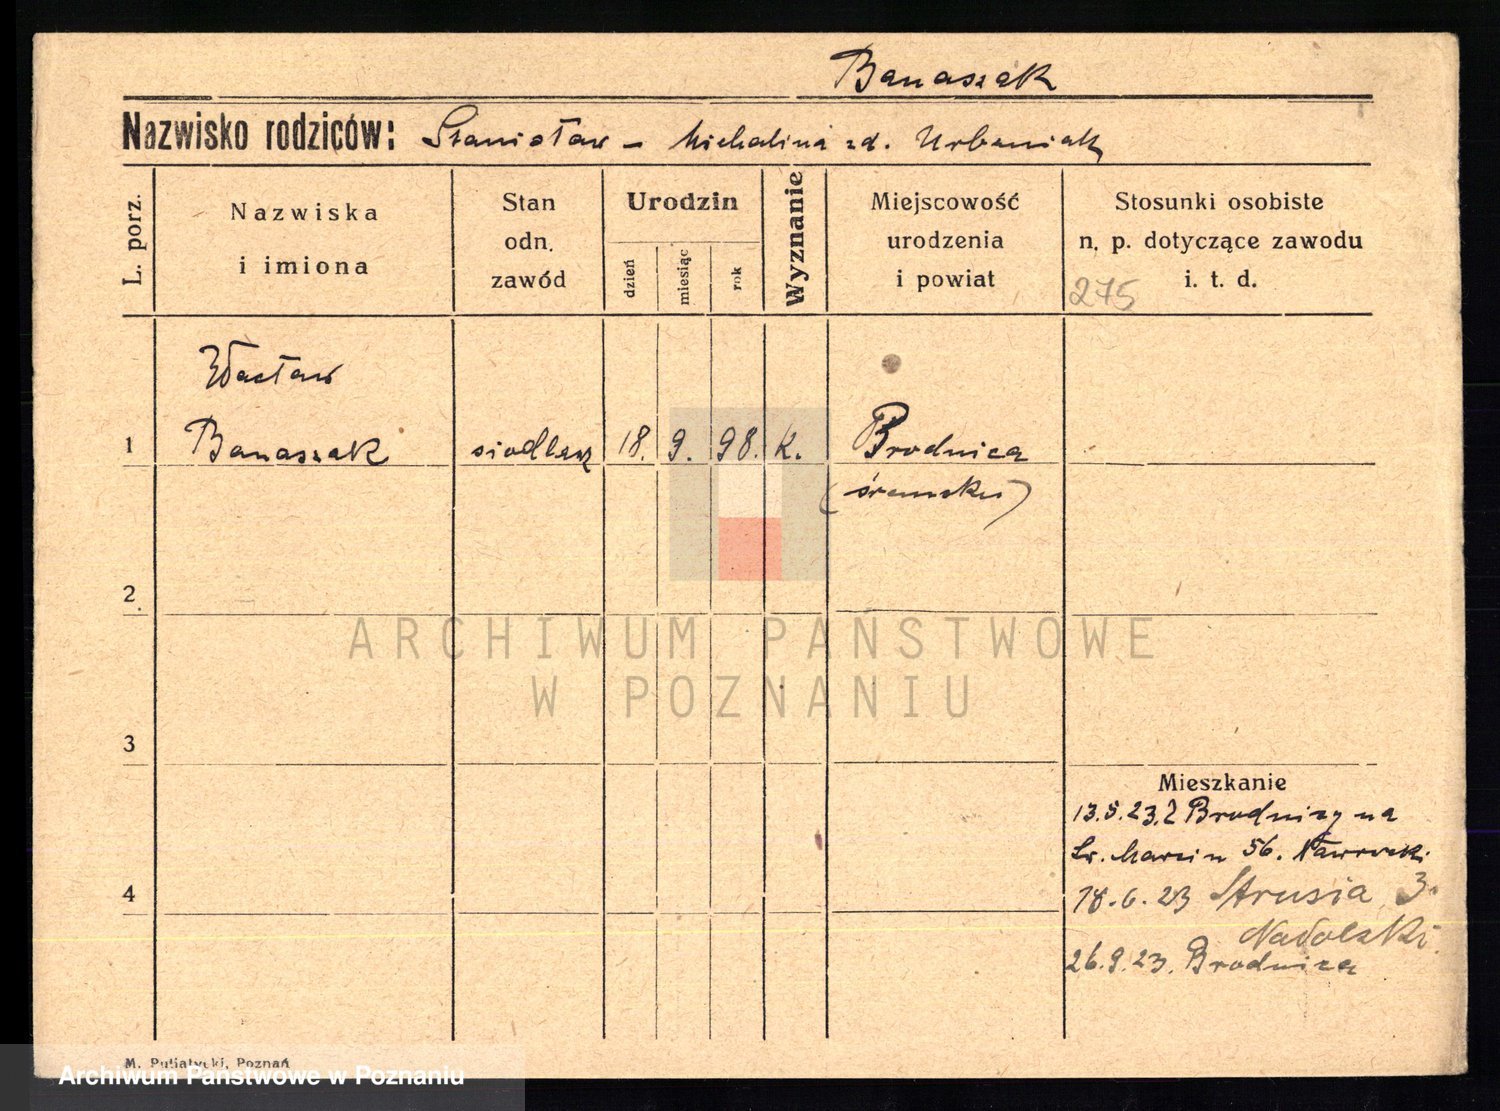 Banaszak
Nazwisko rodziców: Stanisław - Michalina zd. Urbaniak
L. porz.
Nazwiska
i imiona
Stan
odn.
zawód
Urodzin
dzień
miesiąc
rok
Wyznanie
Miejscowość
urodzenia
i powiat
Stosunki osobiste
n. p. dotyczące zawodu
i. t. d.
275
Wacław
1 Banaszak siodlarz 18. 9. 98. k. Brodnica
(śremski)
2
3
4
Mieszkanie
13.5.23. z Brodnicy na
Św. Marcin 56. Nawrocki
18.6.23 Strusia 3.
Nadolski
26.9.23. Brodnica
ARCHIWUM PAŃSTWOWE
W POZNANIU
M. Putiatycki, Poznań
Archiwum Państwowe w Poznaniu